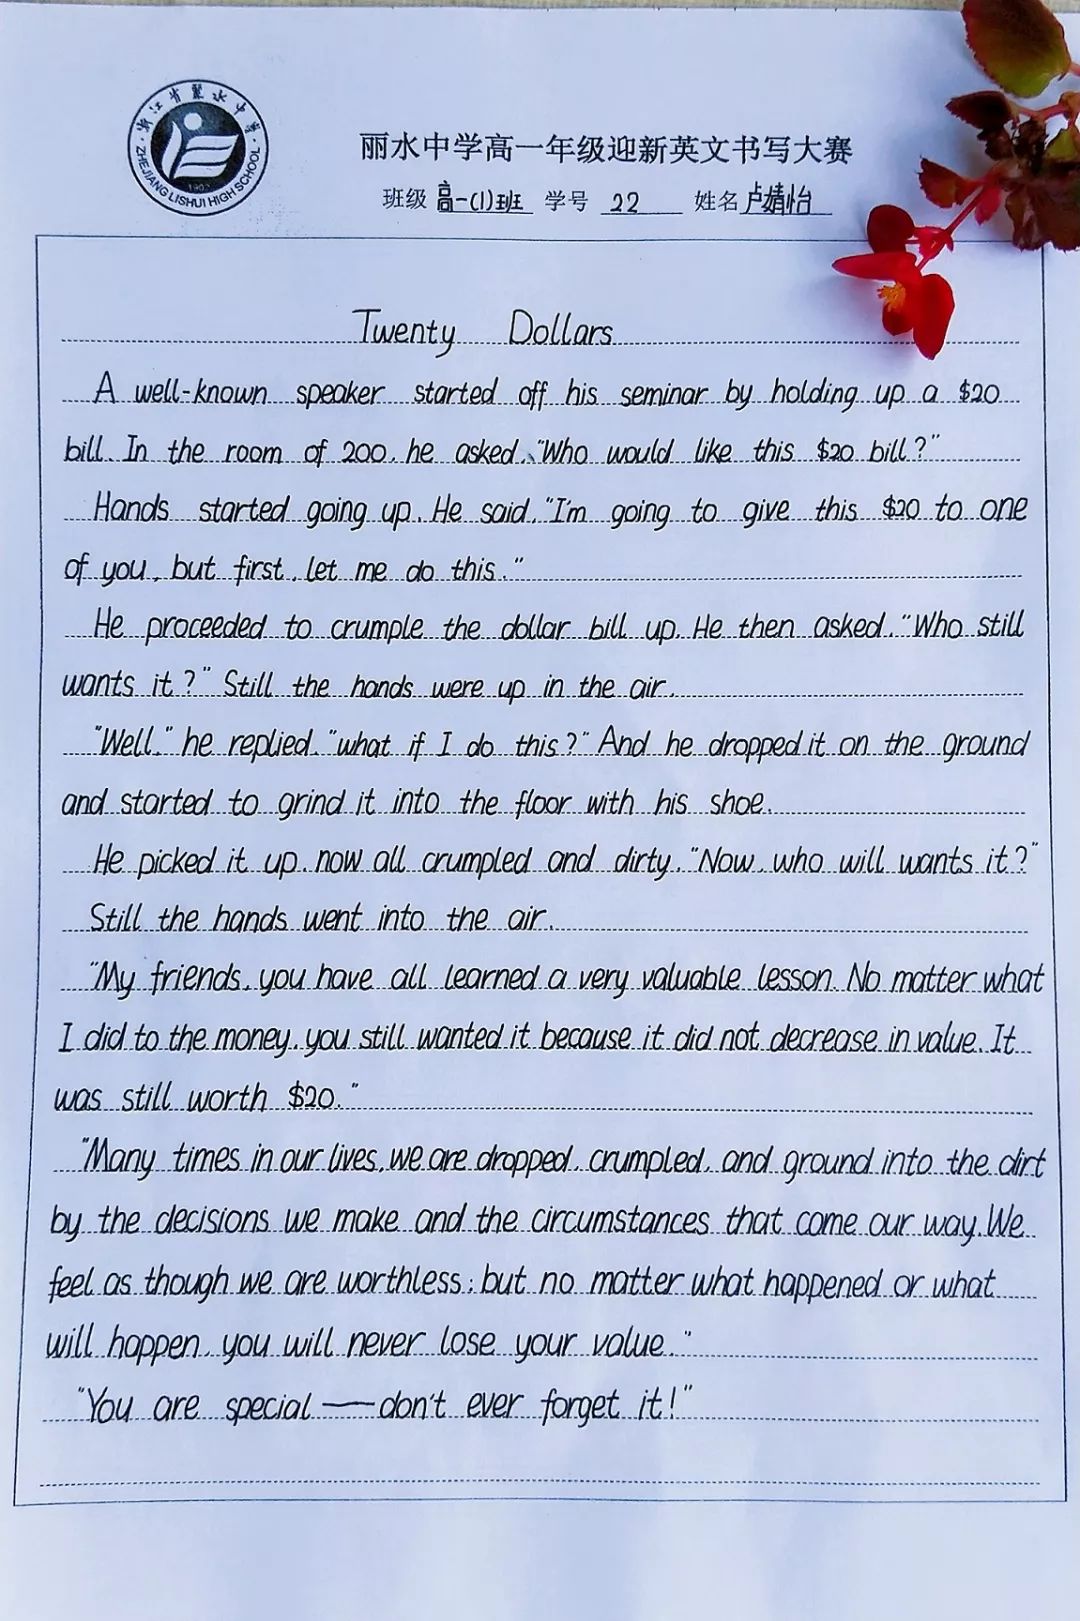 浙江省丽水中学
ZHEJIANG LISHUI HIGH SCHOOL
1902
丽水中学高一年级迎新英文书写大赛
班级 高一(1)班 学号 22 姓名 卢婧怡
Twenty Dollars
A well-known speaker started off his seminar by holding up a $20
bill. In the room of 200, he asked, "Who would like this $20 bill?"
Hands started going up. He said, "I'm going to give this $20 to one
of you, but first, let me do this."
He proceeded to crumple the dollar bill up. He then asked, "Who still
wants it?" Still the hands were up in the air.
"Well," he replied, "what if I do this?" And he dropped it on the ground
and started to grind it into the floor with his shoe.
He picked it up, now all crumpled and dirty. "Now, who will wants it?"
Still the hands went into the air.
"My friends, you have all learned a very valuable lesson. No matter what
I did to the money, you still wanted it because it did not decrease in value. It
was still worth $20."
"Many times in our lives, we are dropped, crumpled, and ground into the dirt
by the decisions we make and the circumstances that come our way. We
feel as though we are worthless; but no matter what happened or what
will happen, you will never lose your value."
"You are special — don't ever forget it!"